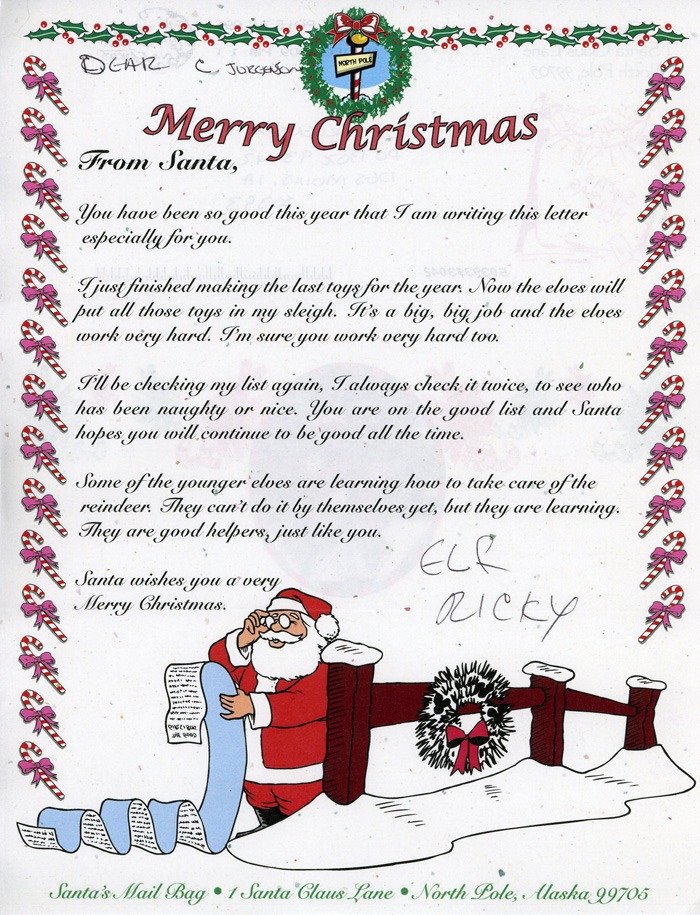 NORTH POLE
DEAR C JURGENSON
Merry Christmas
From Santa,
You have been so good this year that I am writing this letter
especially for you.
I just finished making the last toys for the year. Now the elves will
put all those toys in my sleigh. It's a big, big job and the elves
work very hard. I'm sure you work very hard too.
I'll be checking my list again, I always check it twice, to see who
has been naughty or nice. You are on the good list and Santa
hopes you will continue to be good all the time.
Some of the younger elves are learning how to take care of the
reindeer. They can't do it by themselves yet, but they are learning.
They are good helpers, just like you.
Santa wishes you a very
Merry Christmas.
ELF
RICKY
Santa's Mail Bag • 1 Santa Claus Lane • North Pole, Alaska 99705